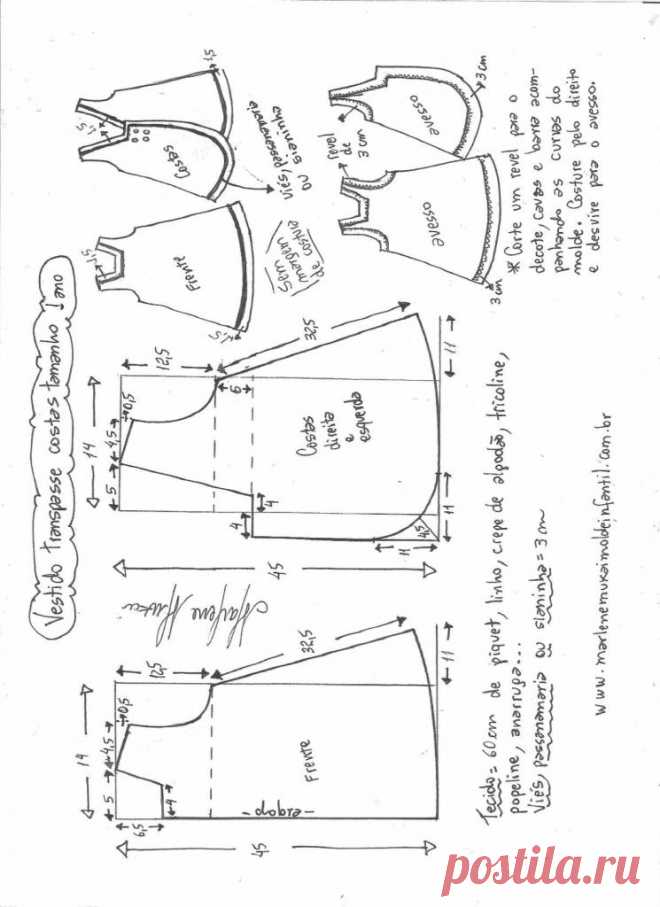 Vestido transpasse costas tamanho 1 ano
14
5
4,5
0,5
12,5
6,5
4
32,5
11
45
Frente
-dobra-
14
5
4,5
0,5
12,5
6
32,5
11
4
4
45
11
11
4,5
Costas
direita
e
esquerda
Marlene Mukai
1,5
Frente
1,5
1,5
costas
1,5
Viés, passanamaria
ou sianinha
Sem
margem
de costura
Revel
de
3 cm
avesso
3 cm
avesso
3 cm
* Corte um revel para o
decote, cavas e barra acom-
panhando as curvas do
molde. Costure pelo direito
e desvire para o avesso.
Tecido = 60 cm de piquet, linho, crepe de algodão, tricoline,
popeline, anarruga...
Viés, passanamaria ou sianinha = 3 cm
www.marlenemukaimoldeinfantil.com.br
postila.ru